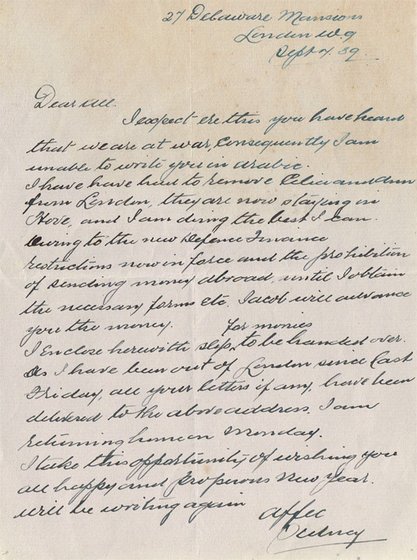 27 Delaware Mansions
London W.9
Sept 4. 39.
Dear All.
I expect ere this you have heard
that we are at war, consequently I am
unable to write you in arabic.
I have have had to remove Celia and Ann
from London, they are now staying in
Hove, and I am doing the best I can.
Owing to the new Defence Finance
restrictions now in force and the prohibition
of sending money abroad, until I obtain
the necessary forms etc, Jacob will advance
you the money. for monies
I Enclose herewith slips, to be handed over.
As I have been out of London since Last
Friday, all your letters if any, have been
delivered to the above address. I am
returning home on Monday.
I take this opportunity of wishing you
all happy and properous New Year.
will be writing again
Affec